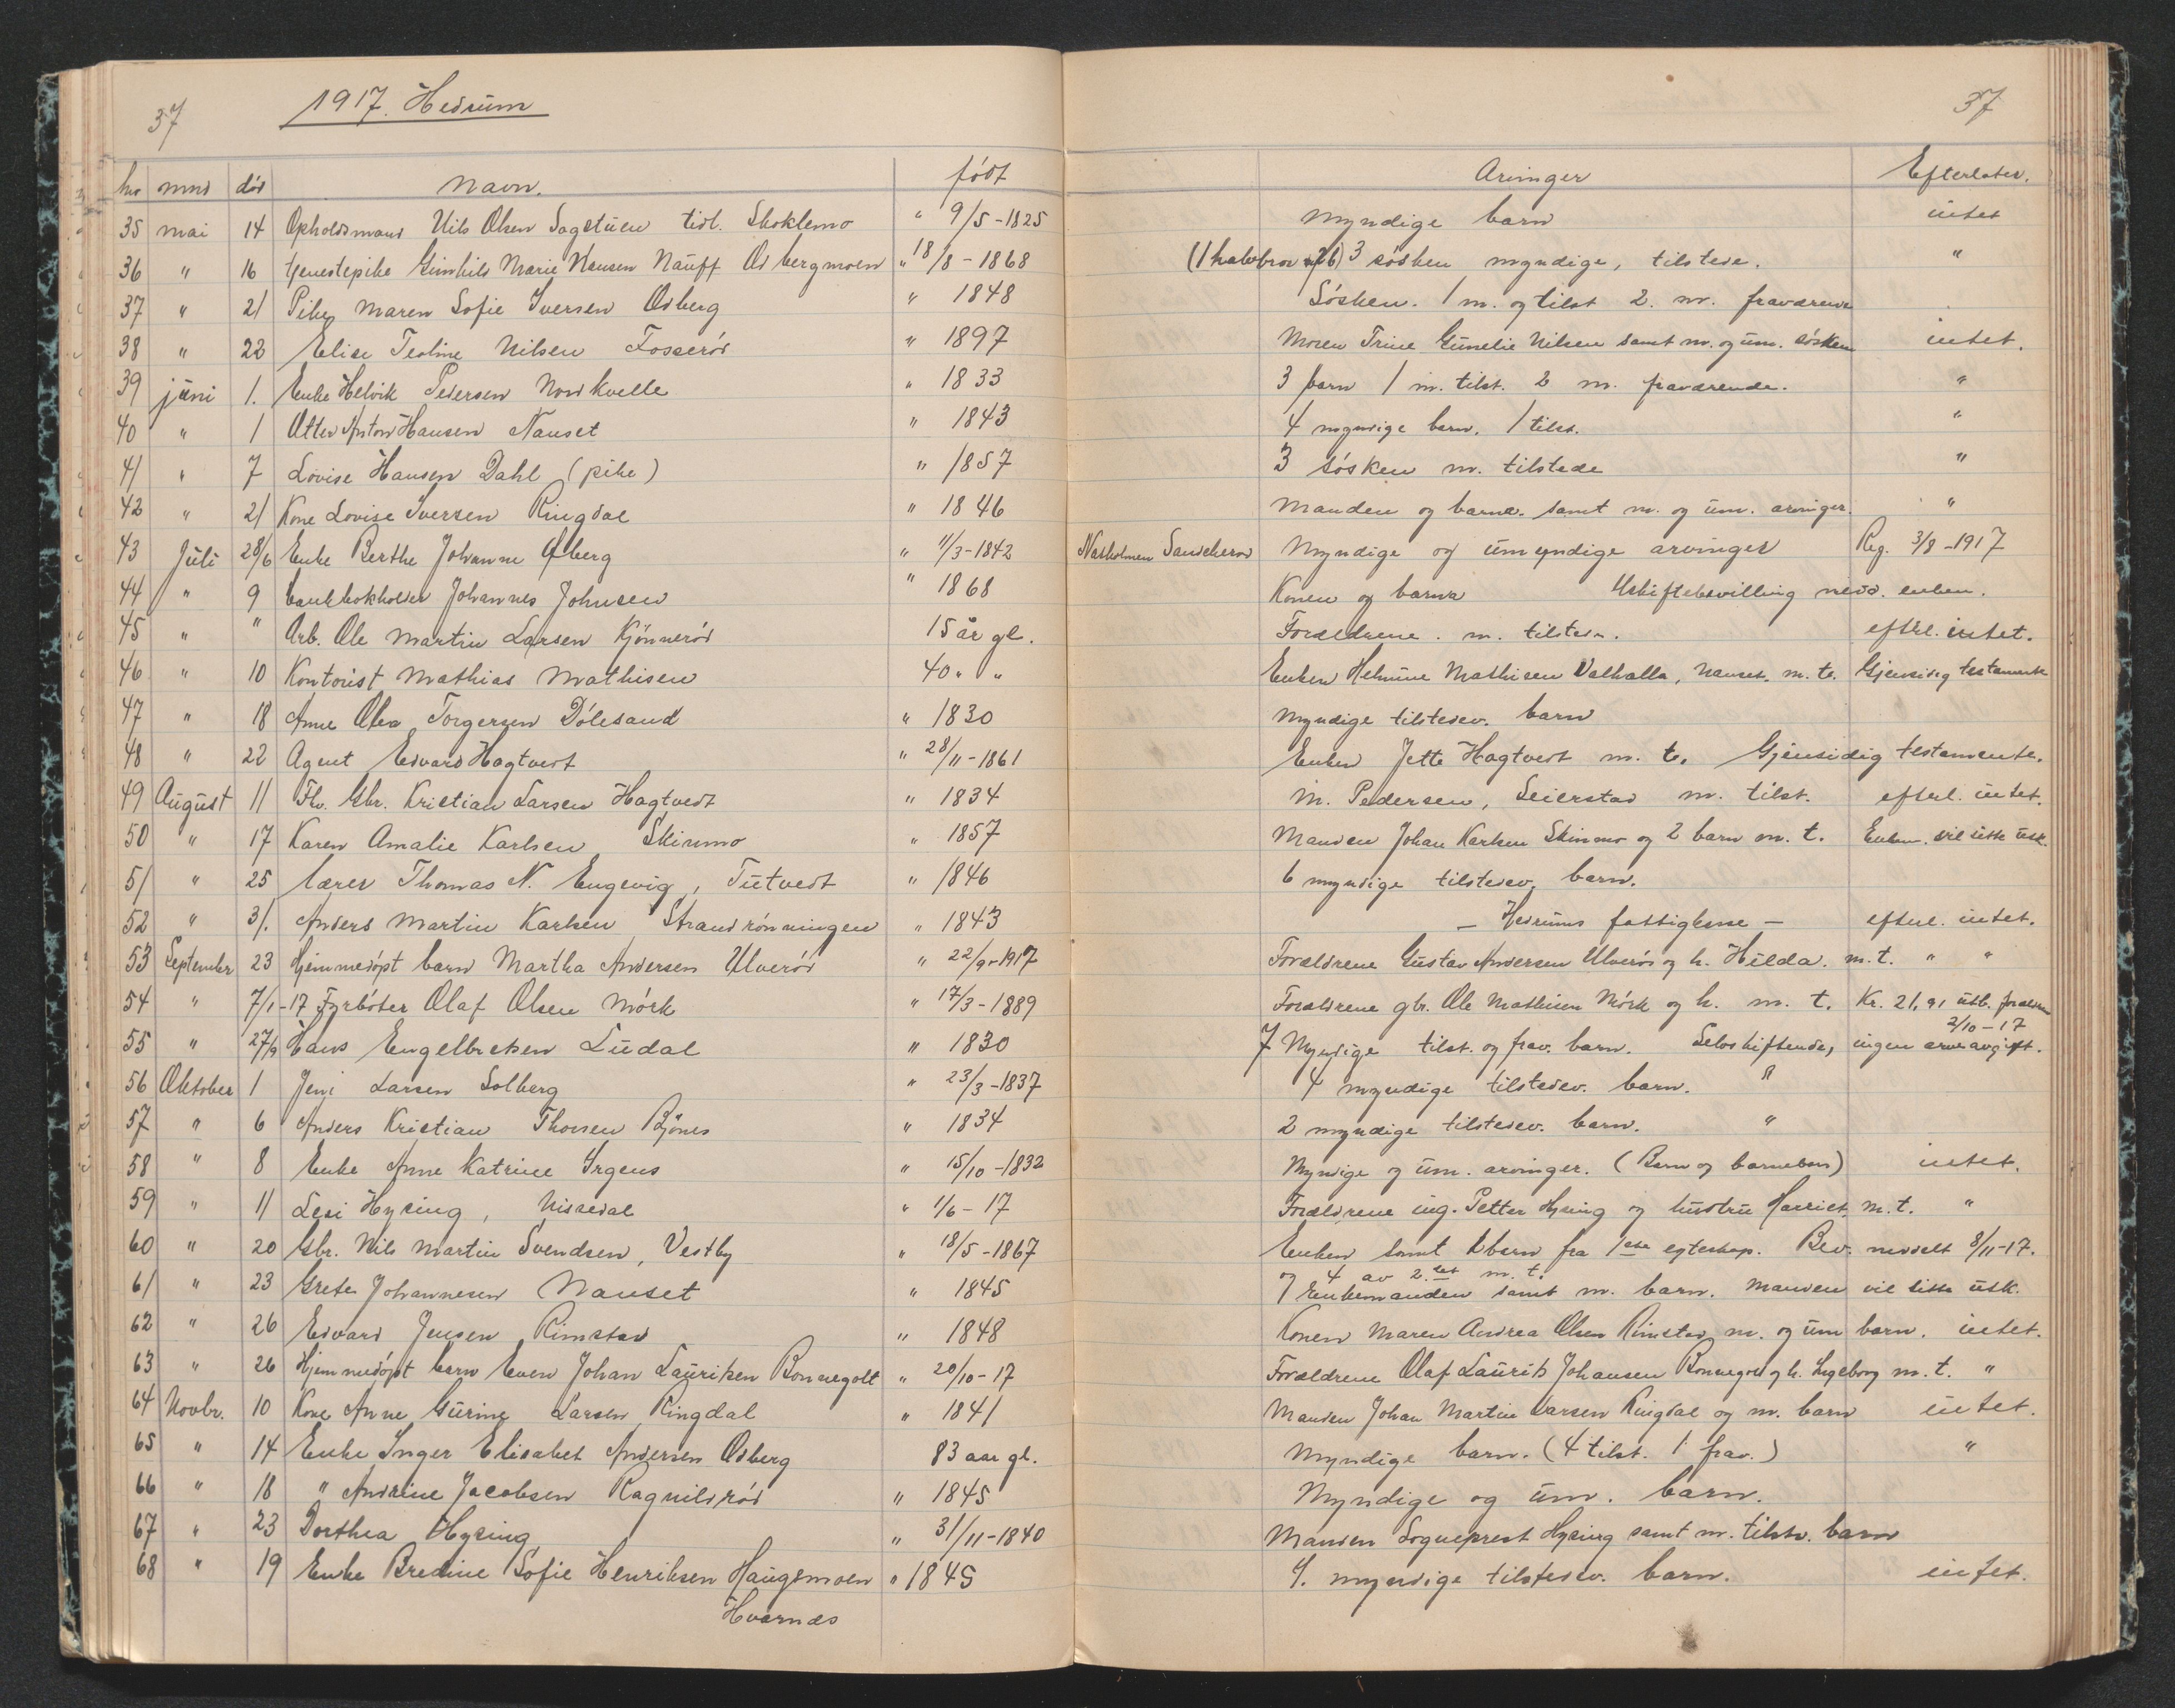 37 1917. Hedrum 37
no mnd dód Navn. födt Arvinger Efterlater.
35 mai 14 Opholdsmand Nils Olsen Sagstuen tidl. Skoklemo " 9/5-1825 Myndige barn intet
36 " 16 tjenestepike Gunhild Marie Hansen Nauff Odbergmoen " 18/8-1868 (1 halvbror) 3 sósken myndige, tilstede. "
37 " 21 Pike Maren Sofie Iversen Odberg " 1848 Sósken. 1 m. og tilst 2. m. fraværende
38 " 22 Elise Teoline Nilsen Fosseród " 1897 Moren Trine Gunelie Nilsen samt m. og um. sósken intet.
39 juni 1. Enke Helvik Pedersen Nordkvelle " 1833 3 barn 1 m. tilst. 2 m. fraværende. "
40 " 1 Otter Anton Hansen Nanset " 1843 4 myndige barn. 1 tilst. "
41 " 7 Lovise Hansen Dahl (pike) " 1857 3 sósken m. tilstede "
42 " 21 Kone Lovise Iversen Ringdal " 1846 Manden og barna. samt m. og um. arvinger. "
43 Juli 28/6 Enke Berthe Johanne Öberg " 11/3-1842 Natholmen Sandeherad Myndige og umyndige arvinger Reg. 3/8-1917
44 " 9 bankbokholder Johannes Johnsen " 1868 Konen og barna Uskiftebevilling medd. enken.
45 " " Arb. Ole Martin Larsen Kjönneród 15 år gl. Forældrene. m. tilstede. efterl. intet.
46 " 10 Kontorist Mathias Mathisen 40 " " Enken Helmine Mathisen Valhalla, Nanset. m. t. Gjensidig testamente
47 " 18 Anne Olea Torgersen Dólesand " 1830 Myndige tilstedev. barn
48 " 22 Agent Edvard Hagtvedt " 28/11-1861 Enken Jette Hagtvedt m. t. Gjensidig testamente.
49 August 11 Fhv. Gbr. Kristian Larsen Hagtvedt " 1834 M. Pedersen, Seierstad m. tilst. efterl. intet.
50 " 17 Karen Amalie Karlsen Skinmo " 1857 Manden Johan Karlsen Skinmo og 2 barn m. t. Enkem. vil sitte usk.
51 " 25 lærer Thomas N. Engevig, Tutvedt " 1846 6 myndige tilstedev. barn.
52 " 31. Anders Martin Karlsen Strandrónningen " 1843 - Hedrums fattigkasse - efterl. intet.
53 September 23 Hjemmedópt barn Martha Andersen Ulveród " 22/9-1917 Forældrene Gustav Andersen Ulveród og h. Hilda. m. t. " "
54 " 7/1-17 Fyrbóter Olaf Olsen Mórk " 17/3-1889 Forældrene gbr. Ole Mathisen Mórk og h. m. t. Kr. 21,91 utb. foreldre
2/10-17
55 " 27/9 Hans Engelbretsen Ludal " 1830 7 Myndige tilst. og frav. barn. Selvskiftende, ingen arveavgift.
56 Oktober 1 Larsen Solberg " 23/3-1837 4 myndige tilstedev. barn. "
57 " 6 Anders Kristian Thorsen Bjönes " 1834 2 myndige tilstedev. barn. "
58 " 8 Enke Anne Katrine Irgens " 15/10-1832 Myndige og um. arvinger. (Barn og barnebarn) intet.
59 " 11 Hysing, Nissedal " 1/6-17 Forældrene ing. Petter Hysing og hustru Harriet m. t. "
60 " 20 Gbr. Nils Martin Svendsen, Vestby " 18/5-1867 Enken samt barn fra 1ste egteskap. Bev. meddelt 8/11-17.
og 4 av 2.det m. t.
61 " 23 Grete Johannesen Nanset " 1845 Enkemanden samt m. barn. Manden vil sitte usk.
62 " 26 Edvard Jensen Rimstad " 1848 Konen Maren Andrea Olsen Rimstad m. og um barn. intet.
63 " 26 Hjemmedópt barn Even Johan Lauritsen Bonnegolt " 20/10-17 Forældrene Olaf Laurits Johansen Bonnegolt og h. Ingeborg m. t. "
64 Novbr. 10 Kone Anne Gurine Larsen Ringdal " 1841 Manden Johan Martin Larsen Ringdal og m. barn intet.
65 " 14 Enke Inger Elisabet Andersen Odberg 83 aar gl. Myndige barn. (4 tilst. 1 frav.) "
66 " 18 " Andrine Jacobsen Ragnildród " 1845 Myndige og um. barn.
67 " 23 Dorthea Hysing " 31/11-1840 Manden Sogneprest Hysing samt m. tilstv. barn
68 " 19 Enke Bredine Sofie Henriksen Haugsmoen " 1845 4. myndige tilstedev. barn. intet.
Hvarnæs